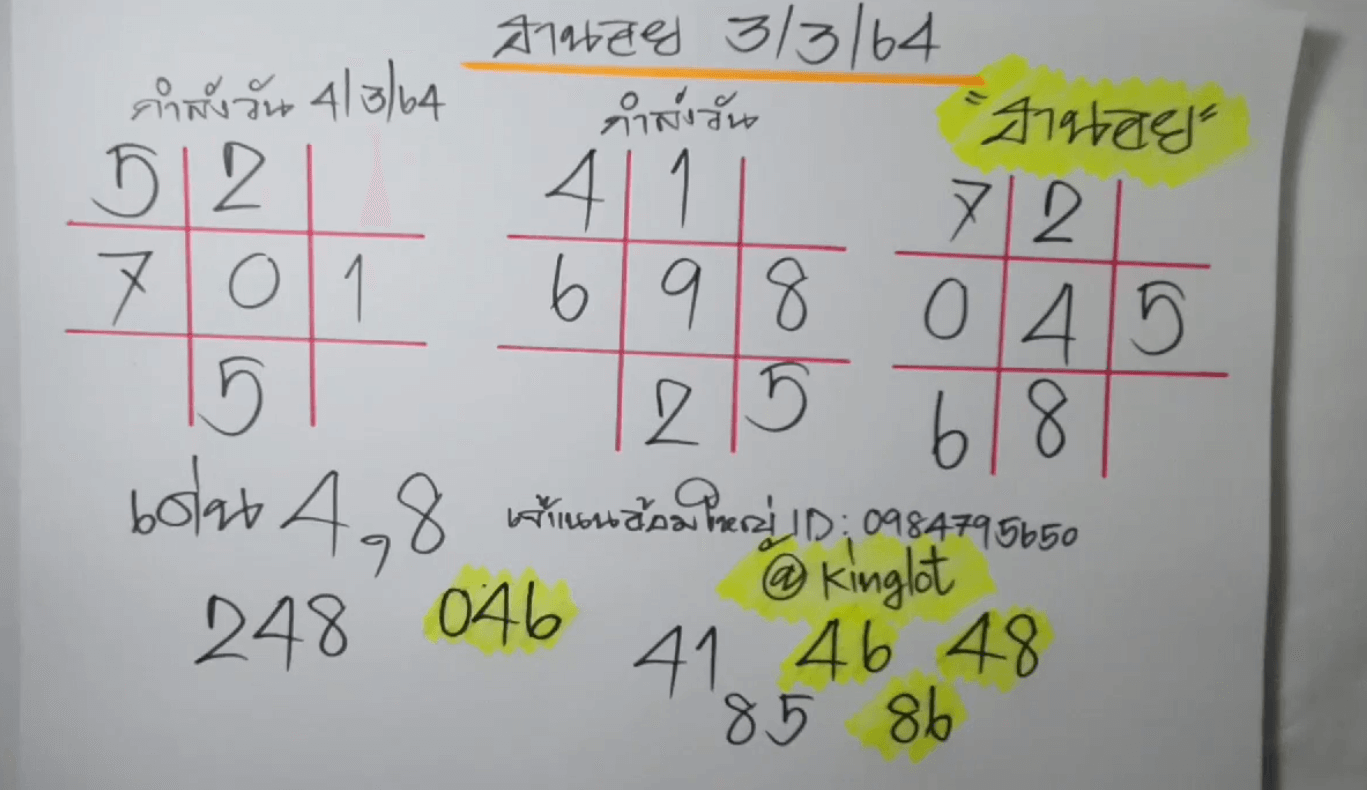 ฮานอย 3/3/64
คำสั่งวัน 4/3/64
5 2
7 0 1
5
คำสั่งวัน
4 1
6 9 8
2 5
"ฮานอย"
7 2
0 4 5
6 8
เด่น 4,8
248 046
เจ๊แนนอ้อมใหญ่ ID: 0984795650
@kinglot
41 46 48
85 86